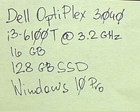 Dell OptiPlex 3040
i3-6100T @ 3.2 GHz
16 GB
128 GB SSD
Windows 10 Pro